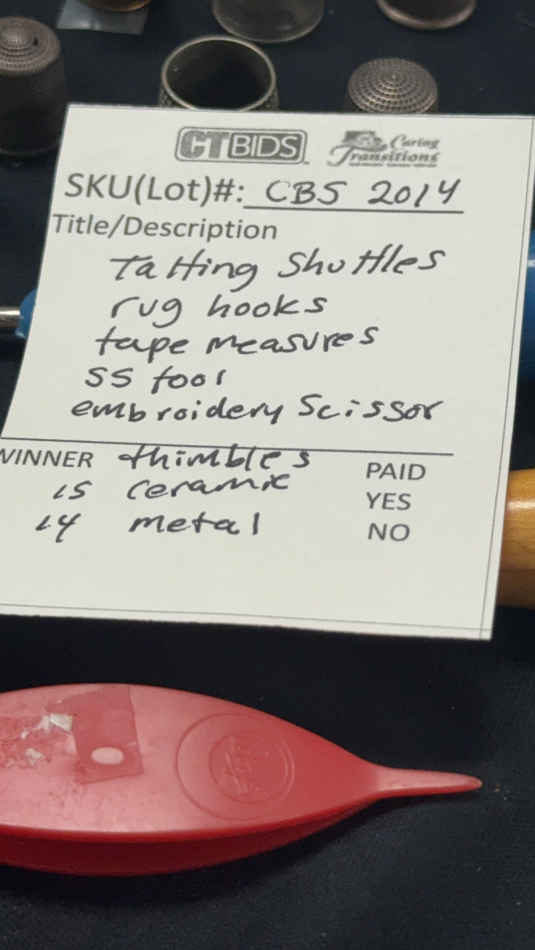 CTBIDS
Caring Transitions
SKU(Lot)#: CBS 2014
Title/Description
Tatting Shuttles
rug hooks
tape measures
SS tool
embroidery Scissor
WINNER thimbles PAID
15 ceramic YES
14 metal NO